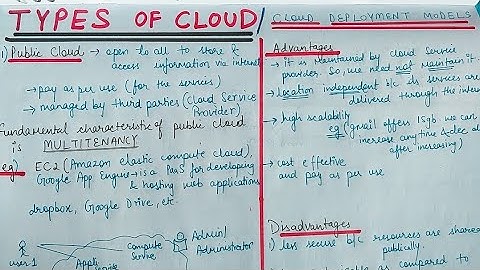 TYPES OF CLOUD/ CLOUD DEPLOYMENT MODELS
1) Public Cloud → open to all to store &
access information via internet
→ pay as per use (for the services)
→ managed by third parties (Cloud Service
Provider)
Fundamental characteristic of public cloud
is MULTITENANCY
eg) EC2 (Amazon elastic compute cloud),
Google App Engine → is a PaaS for developing
& hosting web applications
dropbox, Google Drive, etc.
user 1
Compute
Service
Admin/
Administrator
Advantages
→ it is maintained by cloud Service
provider. So, we need not maintain it.
→ location independent b/c its services are
delivered through the inter
→ high scalability
eg (gmail offers 15gb we can
increase anytime & dec al
after increasing)
→ cost effective
and pay as per use
Disadvantages
1) less secure b/c resources are shared
publically.
as compared to